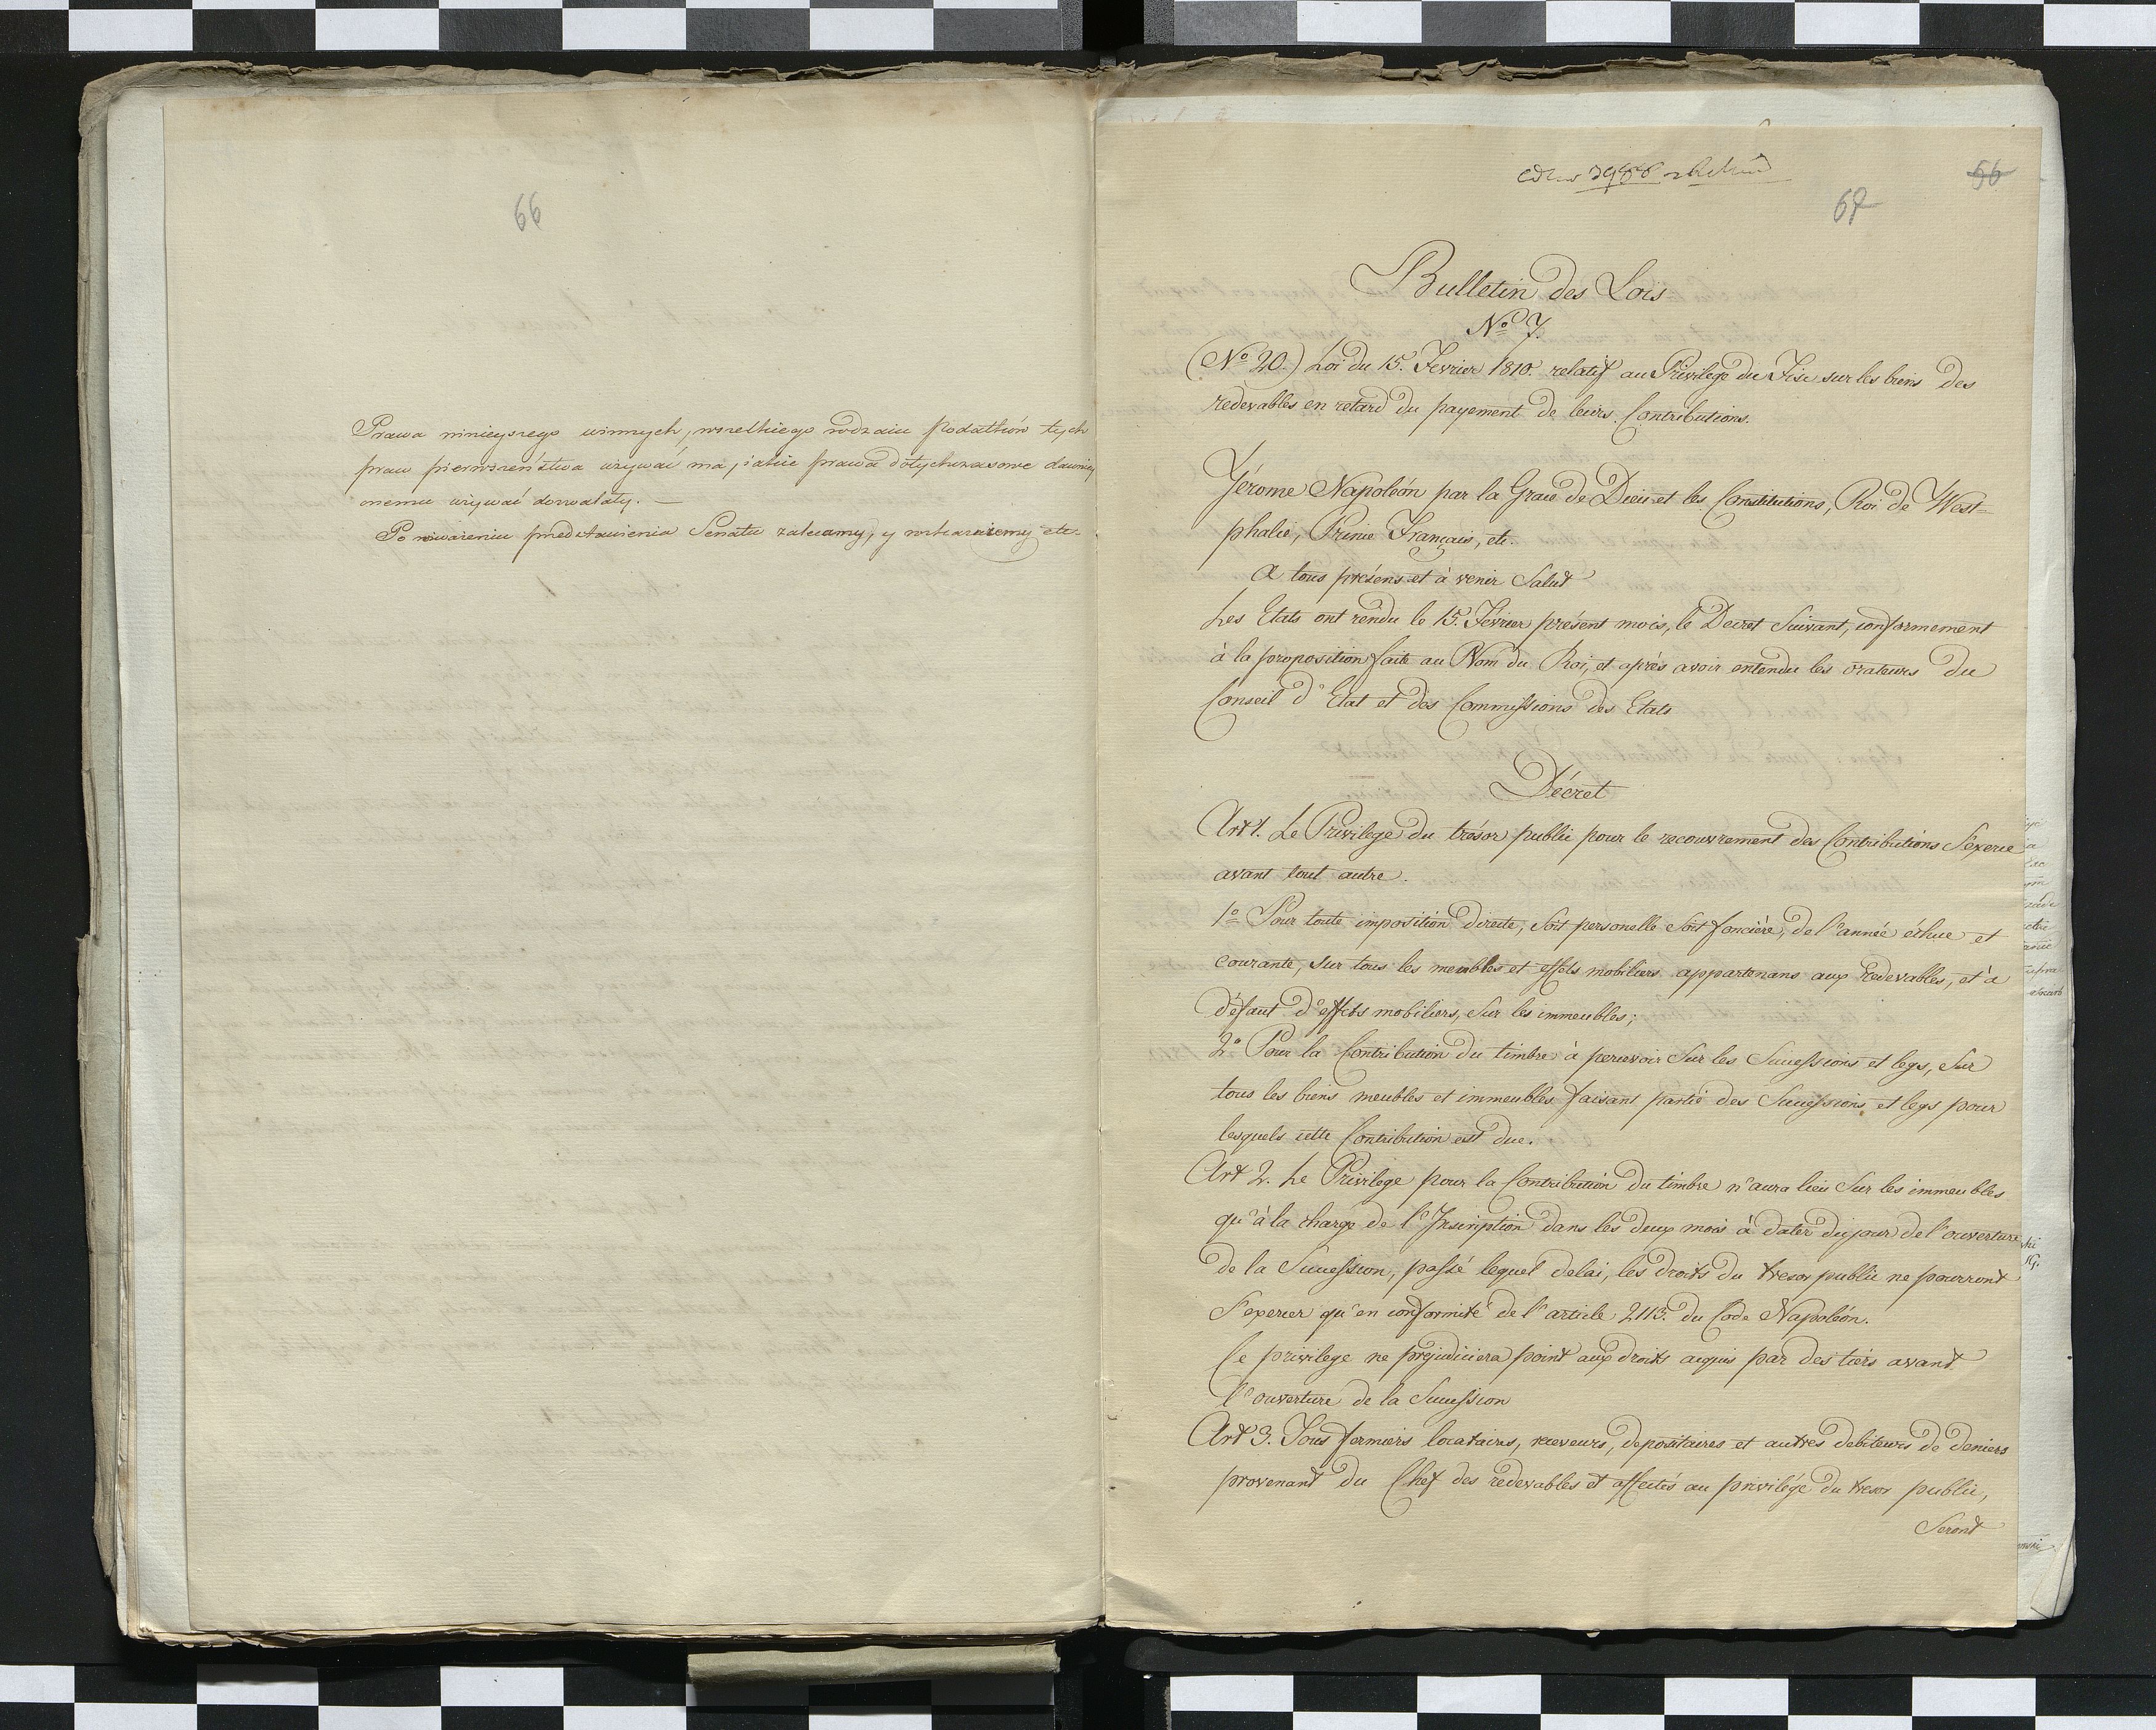 66
Prawa ninieyszego winnych, wszelkiego rodzaiu Podatków tych
praw pierwszeństwa używać ma, iakie prawa dotychczasowe dawniey
onemu używać dozwalały. —
Po rozważeniu przedstawienia Senatu zalecamy, y wskazuiemy etc.
56
67
Bulletin des Lois
No 7.
(No 20.) Loi du 15. Fevrier 1810. relatif au Privilege du Fisc sur les biens des
rédevables en retard du payement de leurs Contributions.
Jérome Napoléon par la Grace de Dieu et les Constitutions, Roi de West=
phalie, Prince Français, etc.
a tous présens et à venir Salut
Les Etats ont rendu le 15. Février présent mois, le Decret Suivant, conformement
à la proposition faite au Nom du Roi, et aprés avoir entendu les orateurs du
Conseil d'Etat et des Commissions des Etats
Décret
Art 1. Le Privilege du trésor public pour le recouvrement des Contributions S'exerce
avant tout autre.
1o Pour toute imposition directe, Soit personelle Soit foncière, de l'année échue et
courante, sur tous les meubles et effets mobiliers appartenans aux redevables, et à
défaut d'effets mobiliers, Sur les immeubles;
2o Pour la Contribution du timbre à percevoir Sur les Successions et legs, Sur
tous les biens meubles et immeubles faisant partie des Successions et legs pour
lesquels cette Contribution est due.
Art 2. Le Privilege pour la Contribution du timbre n'aura lieu Sur les immeubles
qu'à la charge de l'Inscription dans les deux mois à dater du jour de l'ouverture
de la Succession, passé lequel delai, les droits du tresor public ne pourront
S'exercer qu'en conformité de l'article 2113. du Code Napoléon.
Ce privilege ne préjudiciera point aux droits acquis par des tiers avant
l'ouverture de la Succession
Art 3. Tous fermiers locataires, receveurs, depositaires et autres debiteurs de deniers
provenant du Chef des rédevables et affectés au privilége du tresor public,
Seront